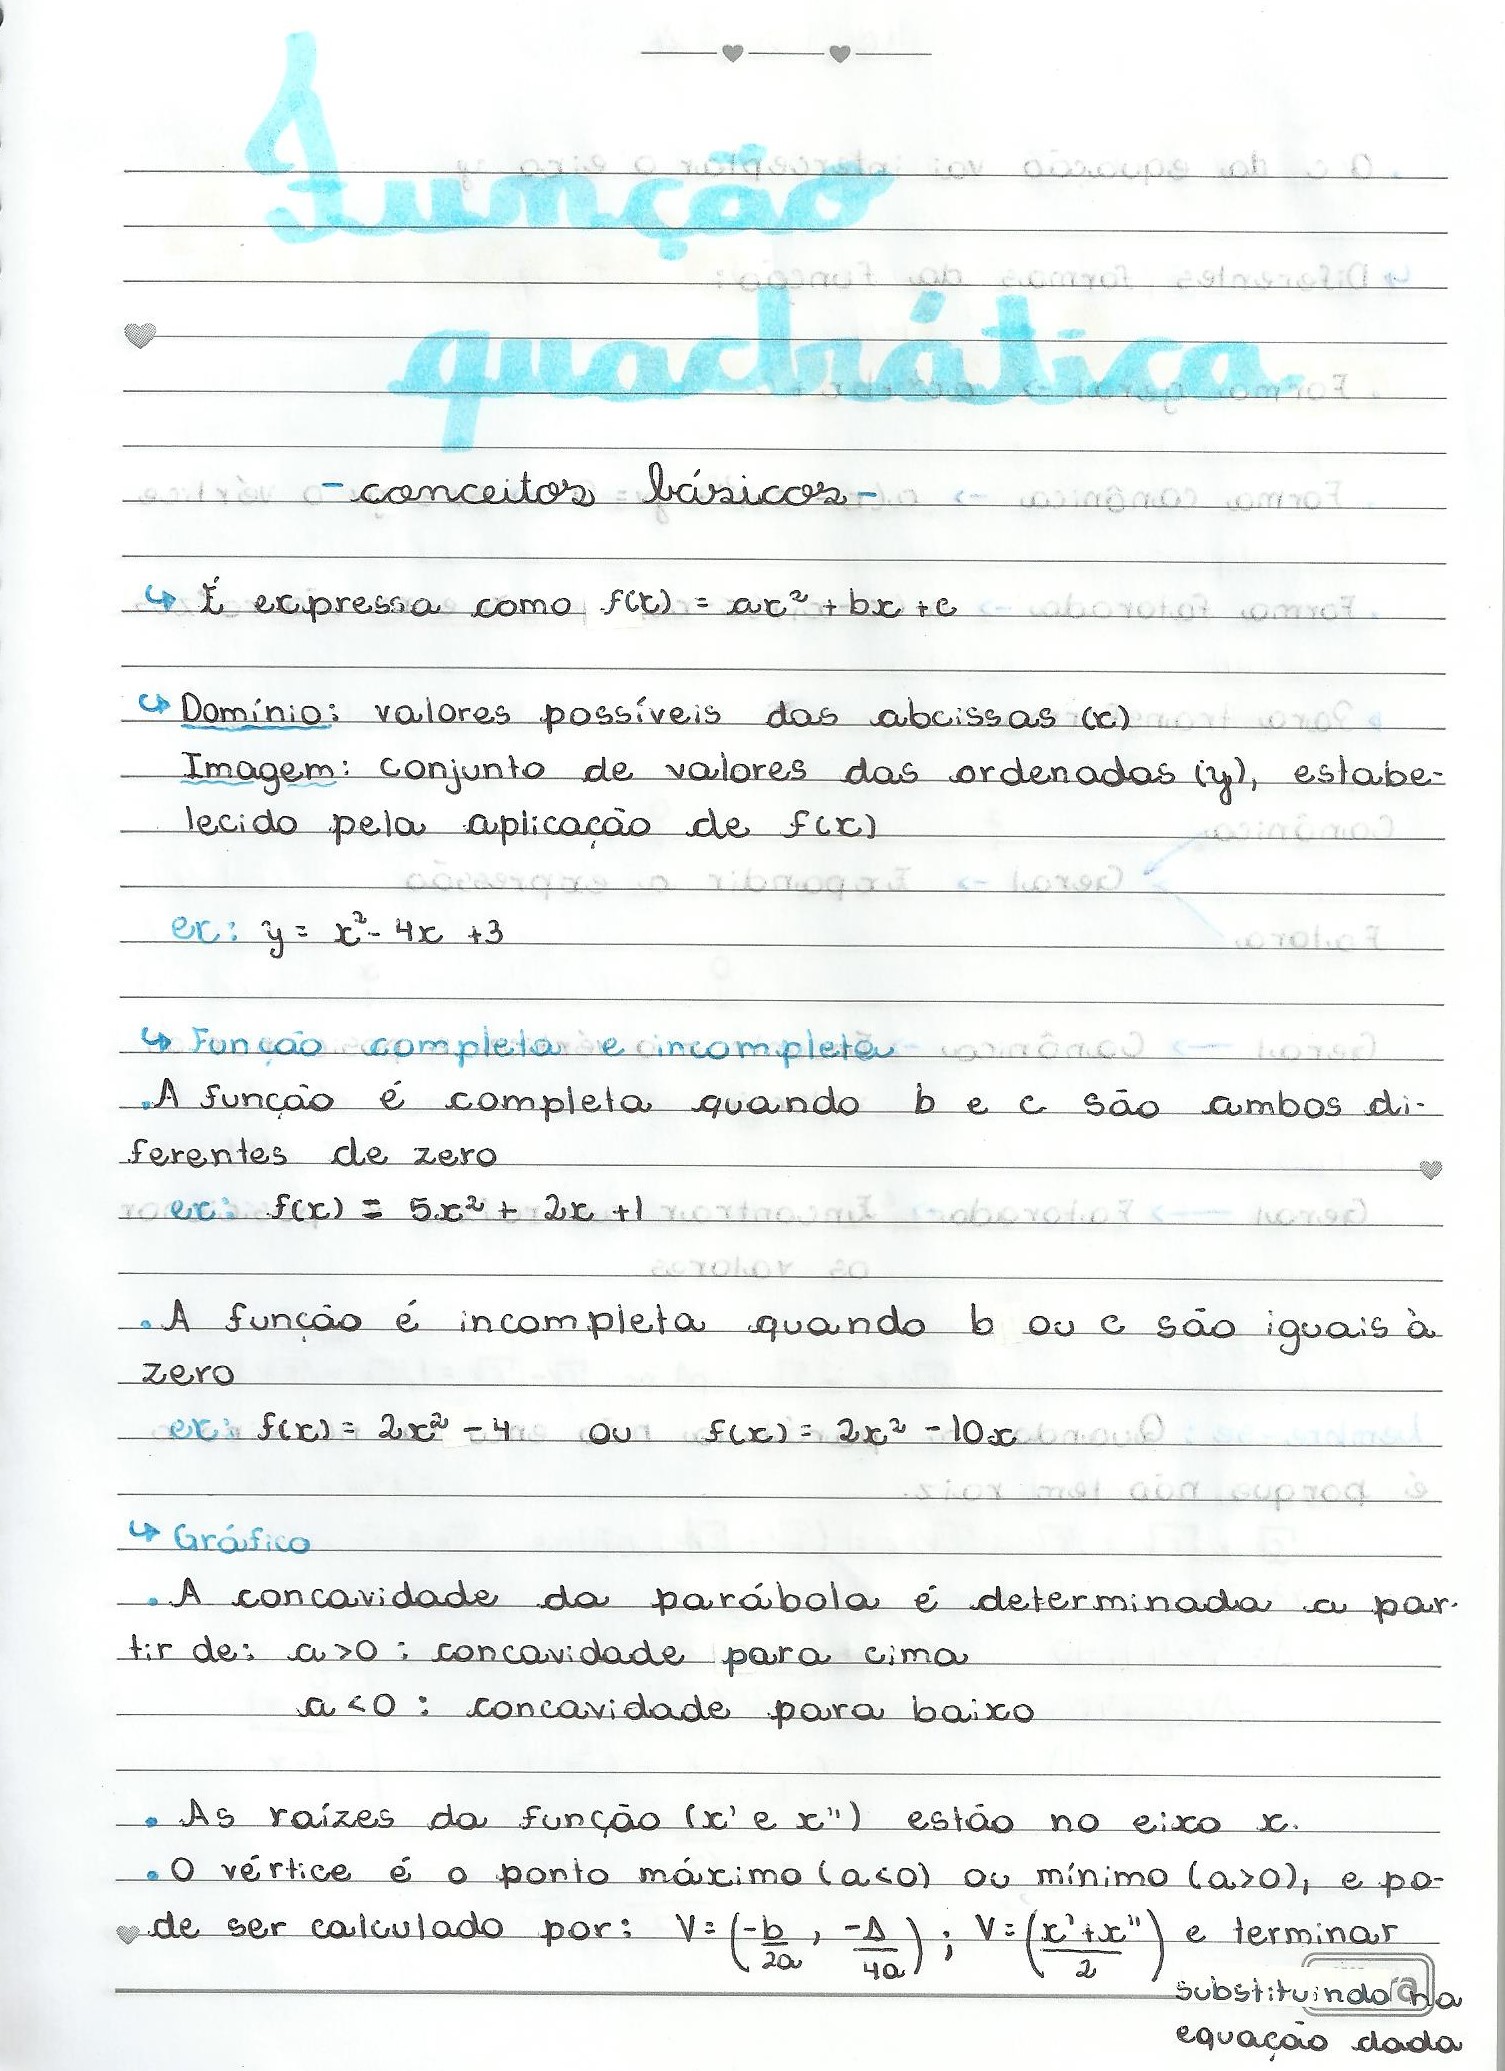 Função
quadrática
- conceitos básicos -
↳ É expressa como f(x) = ax² + bx + c
↳ Domínio: valores possíveis das abcissas (x)
Imagem: conjunto de valores das ordenadas (y), estabe-
lecido pela aplicação de f(x)
ex: y = x² - 4x + 3
↳ Função completa e incompleta
• A função é completa quando b e c são ambos di-
ferentes de zero
ex: f(x) = 5x² + 2x + 1
• A função é incompleta quando b ou c são iguais à
zero
ex: f(x) = 2x² - 4 ou f(x) = 2x² - 10x
↳ Gráfico
• A concavidade da parábola é determinada a par-
tir de: a > 0 : concavidade para cima
a < 0 : concavidade para baixo
• As raízes da função (x' e x'') estão no eixo x.
• O vértice é o ponto máximo (a<0) ou mínimo (a>0), e po-
de ser calculado por: V = (-b/2a , -Δ/4a) ; V = (x'+x''/2) e terminar
substituindo na
equação dada